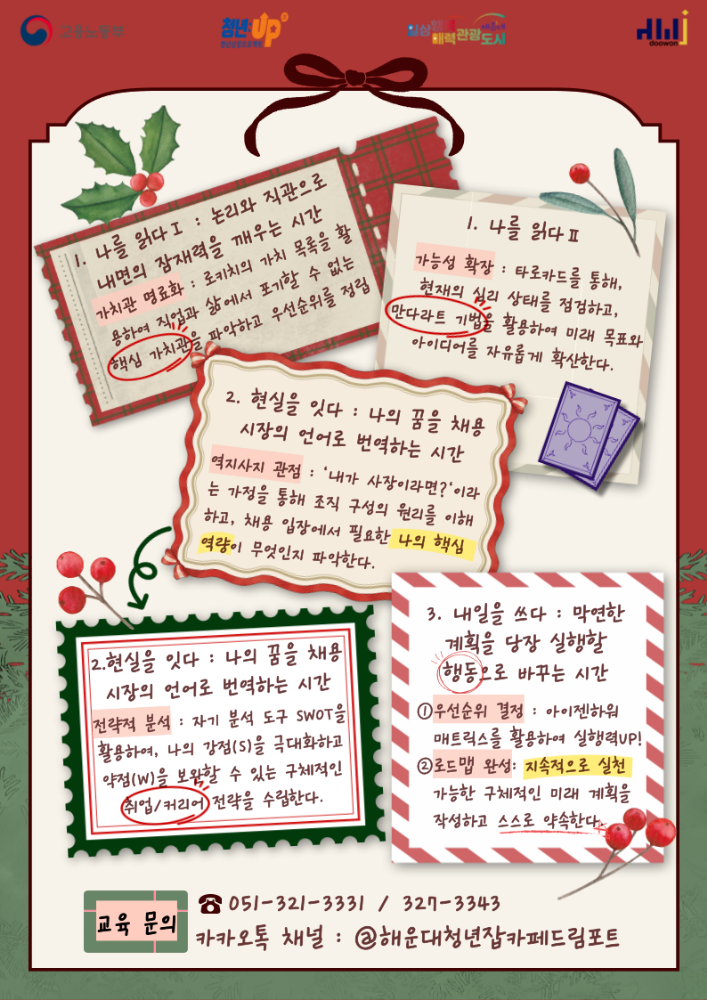 고용노동부
청년UP
일상
매력관광도시
doowon
1. 나를 읽다Ⅰ : 논리와 직관으로
내면의 잠재력을 깨우는 시간
가치관 명료화 : 로키치의 가치 목록을 활
용하여 직업과 삶에서 포기할 수 없는
핵심 가치관을 파악하고 우선순위를 정립
1. 나를 읽다Ⅱ
가능성 확장 : 타로카드를 통해,
현재의 심리 상태를 점검하고,
만다라트 기법을 활용하여 미래 목표와
아이디어를 자유롭게 확산한다.
2. 현실을 잇다 : 나의 꿈을 채용
시장의 언어로 번역하는 시간
역지사지 관점 : '내가 사장이라면?'이라
는 가정을 통해 조직 구성의 원리를 이해
하고, 채용 입장에서 필요한 나의 핵심
역량이 무엇인지 파악한다.
2.현실을 잇다 : 나의 꿈을 채용
시장의 언어로 번역하는 시간
전략적 분석 : 자기 분석 도구 SWOT을
활용하여, 나의 강점(S)을 극대화하고
약점(W)을 보완할 수 있는 구체적인
취업/커리어 전략을 수립한다.
3. 내일을 쓰다 : 막연한
계획을 당장 실행할
행동으로 바꾸는 시간
①우선순위 결정 : 아이젠하워
매트릭스를 활용하여 실행력UP!
②로드맵 완성: 지속적으로 실천
가능한 구체적인 미래 계획을
작성하고 스스로 약속한다.
교육 문의
☎051-321-3331 / 327-3343
카카오톡 채널 : @해운대청년잡카페드림포트